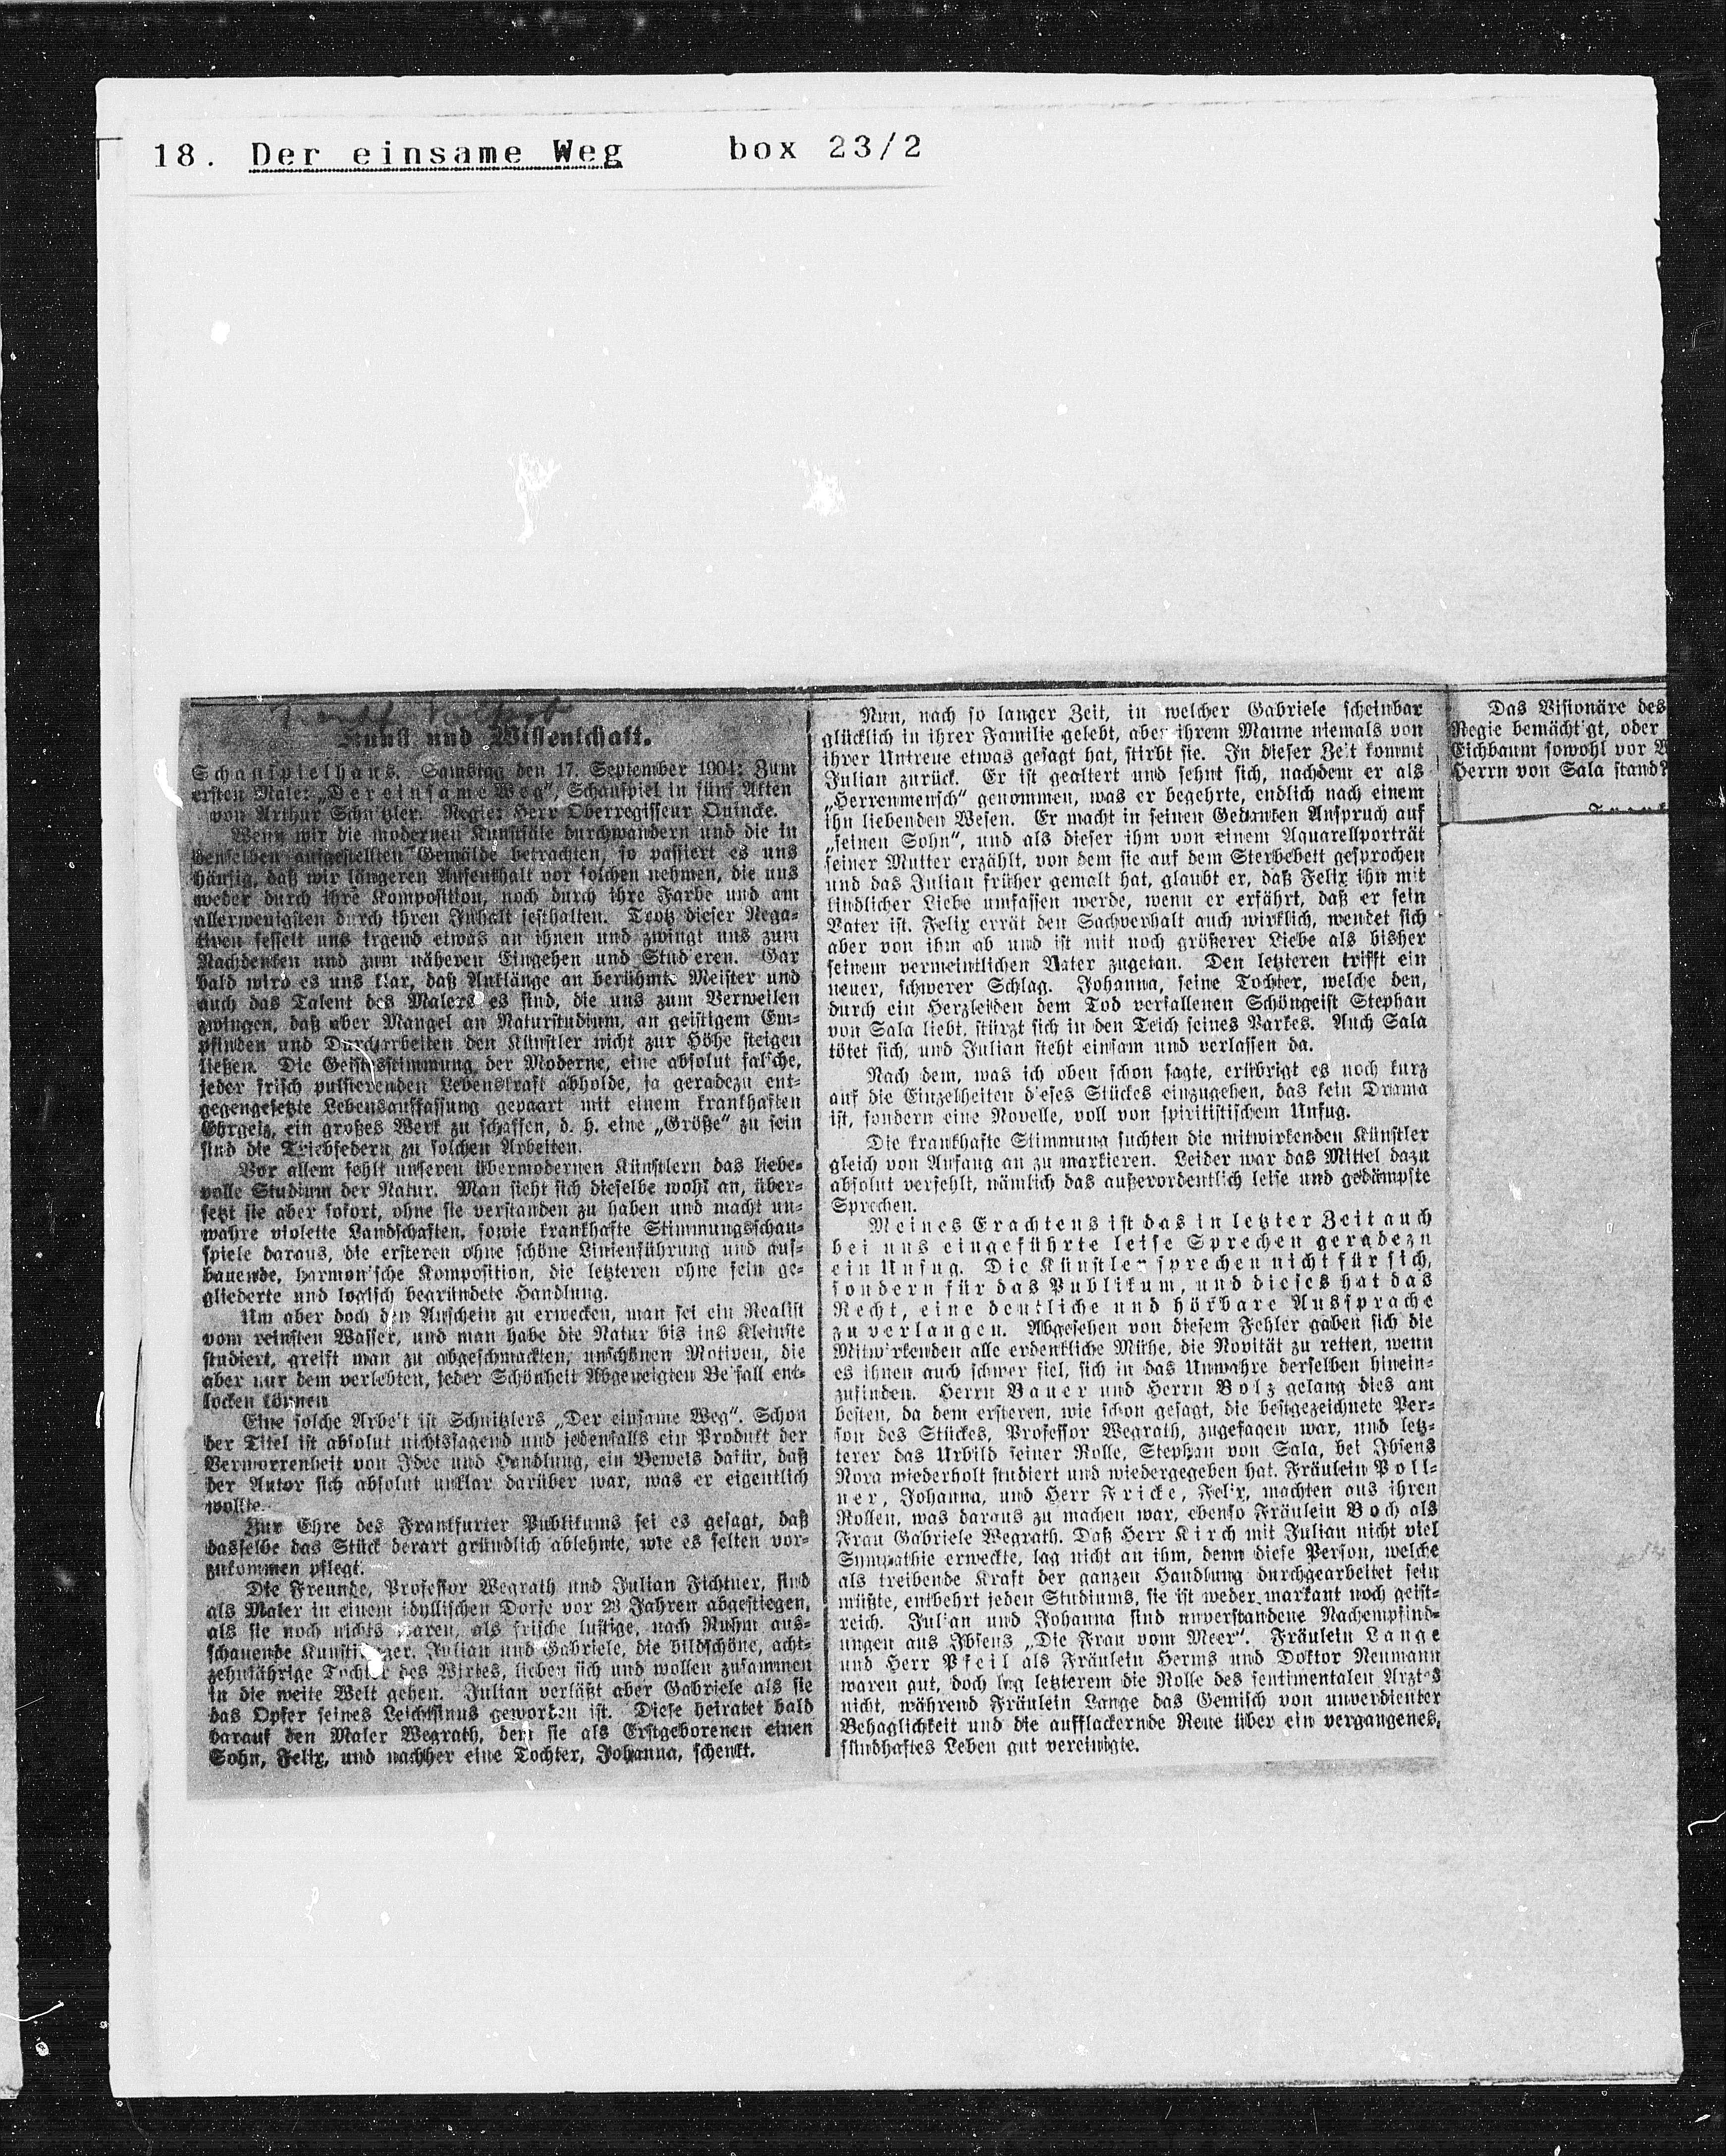 18. Der einsame Weg box 23/2
Kunst und Wissenschaft.
Schauspielhaus. Samstag den 17. September 1904: Zum
ersten Male: „Der einsame Weg“, Schauspiel in fünf Akten
von Arthur Schnitzler. Regie: Herr Oberregisseur Quincke.
Wenn wir die modernen Kunstsäle durchwandern und die in
denselben aufgestellten Gemälde betrachten, so passiert es uns
häufig, daß wir längeren Aufenthalt vor solchen nehmen, die uns
weder durch ihre Komposition, noch durch ihre Farbe und am
allerwenigsten durch ihren Inhalt festhalten. Trotz dieser Nega-
tiven fesselt uns irgend etwas an ihnen und zwingt uns zum
Nachdenken und zum näheren Eingehen und Stud eren. Gar
bald wird es uns klar, daß Anklänge an berühmte Meister und
auch das Talent des Malers es sind, die uns zum Verweilen
zwingen, daß aber Mangel an Naturstudium, an geistigem Em-
pfinden und Durcharbeiten den Künstler nicht zur Höhe steigen
ließen. Die Geistesstimmung der Moderne, eine absolut falsche,
jeder frisch pulsierenden Lebenskraft abholde, ja geradezu ent-
gegengesetzte Lebensauffassung gepaart mit einem krankhaften
Ehrgeiz, ein großes Werk zu schaffen, d. h. eine „Größe“ zu sein
sind die Triebfedern zu solchen Arbeiten.
Vor allem fehlt unseren übermodernen Künstlern das liebe-
volle Studium der Natur. Man sieht sich dieselbe wohl an, über-
setzt sie aber sofort, ohne sie verstanden zu haben und macht un-
wahre violette Landschaften, sowie krankhafte Stimmungsschau-
spiele daraus, die ersteren ohne schöne Linienführung und auf-
bauende, harmon'sche Komposition, die letzteren ohne fein ge-
gliederte und logisch begründete Handlung.
Um aber doch den Anschein zu erwecken, man sei ein Realist
vom reinsten Wasser, und man habe die Natur bis ins Kleinste
studiert, greift man zu abgeschmackten, unschönen Motiven, die
aber nur dem verlebten, jeder Schönheit Abgeneigten Beifall ent-
locken können
Eine solche Arbeit ist Schnitzlers „Der einsame Weg“. Schon
der Titel ist absolut nichtssagend und jedenfalls ein Produkt der
Verworrenheit von Idee und Handlung, ein Beweis dafür, daß
der Autor sich absolut unklar darüber war, was er eigentlich
wollte.
Zur Ehre des Frankfurter Publikums sei es gesagt, daß
dasselbe das Stück derart gründlich ablehnte, wie es selten vor-
zukommen pflegt.
Die Freunde, Professor Wegrath und Julian Fichtner, sind
als Maler in einem idyllischen Dorfe vor 23 Jahren abgestiegen,
als sie noch nichts waren, als frische lustige, nach Ruhm aus-
schauende Kunstjünger. Julian und Gabriele, die bildschöne, acht-
zehnjährige Tochter des Wirtes, lieben sich und wollen zusammen
in die weite Welt gehen. Julian verläßt aber Gabriele als sie
das Opfer seines Leichtsinns geworden ist. Diese heiratet bald
darauf den Maler Wegrath, dem sie als Erstgeborenen einen
Sohn, Felix, und nachher eine Tochter, Johanna, schenkt.
Nun, nach so langer Zeit, in welcher Gabriele scheinbar
glücklich in ihrer Familie gelebt, aber ihrem Manne niemals von
ihrer Untreue etwas gesagt hat, stirbt sie. In dieser Zeit kommt
Julian zurück. Er ist gealtert und sehnt sich, nachdem er als
„Herrenmensch“ genommen, was er begehrte, endlich nach einem
ihn liebenden Wesen. Er macht in seinen Gedanken Anspruch auf
„seinen Sohn“, und als dieser ihm von einem Aquarellporträt
seiner Mutter erzählt, von dem sie auf dem Sterbebett gesprochen
und das Julian früher gemalt hat, glaubt er, daß Felix ihn mit
kindlicher Liebe umfassen werde, wenn er erfährt, daß er sein
Vater ist. Felix errät den Sachverhalt auch wirklich, wendet sich
aber von ihm ab und ist mit noch größerer Liebe als bisher
seinem vermeintlichen Vater zugetan. Den letzteren trifft ein
neuer, schwerer Schlag. Johanna, seine Tochter, welche den,
durch ein Herzleiden dem Tod verfallenen Schöngeist Stephan
von Sala liebt, stürzt sich in den Teich seines Parkes. Auch Sala
tötet sich, und Julian steht einsam und verlassen da.
Nach dem, was ich oben schon sagte, erübrigt es noch kurz
auf die Einzelheiten dieses Stückes einzugehen, das kein Drama
ist, sondern eine Novelle, voll von spiritistischem Unfug.
Die krankhafte Stimmung suchten die mitwirkenden Künstler
gleich von Anfang an zu markieren. Leider war das Mittel dazu
absolut verfehlt, nämlich das außerordentlich leise und gedämpfte
Sprechen.
Meines Erachtens ist das in letzter Zeit auch
bei uns eingeführte leise Sprechen geradezu
ein Unfug. Die Künstler sprechen nicht für sich,
sondern für das Publikum, und dieses hat das
Recht, eine deutliche und hörbare Aussprache
zu verlangen. Abgesehen von diesem Fehler gaben sich die
Mitwirkenden alle erdenkliche Mühe, die Novität zu retten, wenn
es ihnen auch schwer fiel, sich in das Unwahre derselben hinein-
zufinden. Herrn Bauer und Herrn Bolz gelang dies am
besten, da dem ersteren, wie schon gesagt, die bestgezeichnete Per-
son des Stückes, Professor Wegrath, zugefagen war, und letz-
terer das Urbild seiner Rolle, Stephan von Sala, bei Ibsens
Nora wiederholt studiert und wiedergegeben hat. Fräulein Poll-
ner, Johanna, und Herr Fricke, Felix, machten aus ihren
Rollen, was daraus zu machen war, ebenso Fräulein Boch als
Frau Gabriele Wegrath. Daß Herr Kirch mit Julian nicht viel
Sympathie erweckte, lag nicht an ihm, denn diese Person, welche
als treibende Kraft der ganzen Handlung durchgearbeitet sein
müßte, entbehrt jeden Studiums, sie ist weder markant noch geist-
reich. Julian und Johanna sind unverstandene Nachempfind-
ungen aus Ibsens „Die Frau vom Meer“. Fräulein Lange
und Herr Pfeil als Fräulein Herms und Doktor Neumann
waren gut, doch lag letzterem die Rolle des sentimentalen Arztes
nicht, während Fräulein Lange das Gemisch von unverdienter
Behaglichkeit und die aufflackernde Reue über ein vergangenes,
sündhaftes Leben gut vereinigte.
Das Visionäre des
Regie bemächt'gt, oder
Eichbaum sowohl vor
Herrn von Sala stand?